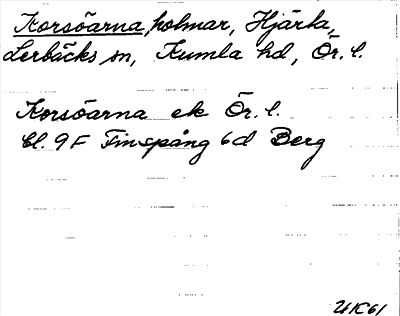 Korsöarna, holmar, Hjärta,
Lerbäcks sn, Kumla hd, Ör. l.
Korsöarna ek Ör. l.
Bl. 9F Finspång 6d Berg
UK61